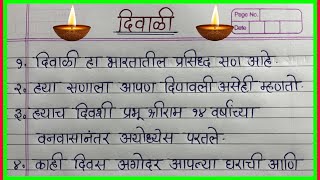 दिवाळी
Page No.
Date
१. दिवाळी हा भारतातील प्रसिद्ध सण आहे.
२. ह्या सणाला आपण दिपावली असेही म्हणतो.
३. ह्याच दिवशी प्रभू श्रीराम १४ वर्षाच्या
वनवासानंतर अयोध्येस परतले.
४. काही दिवस अगोदर आपल्या घराची आणि